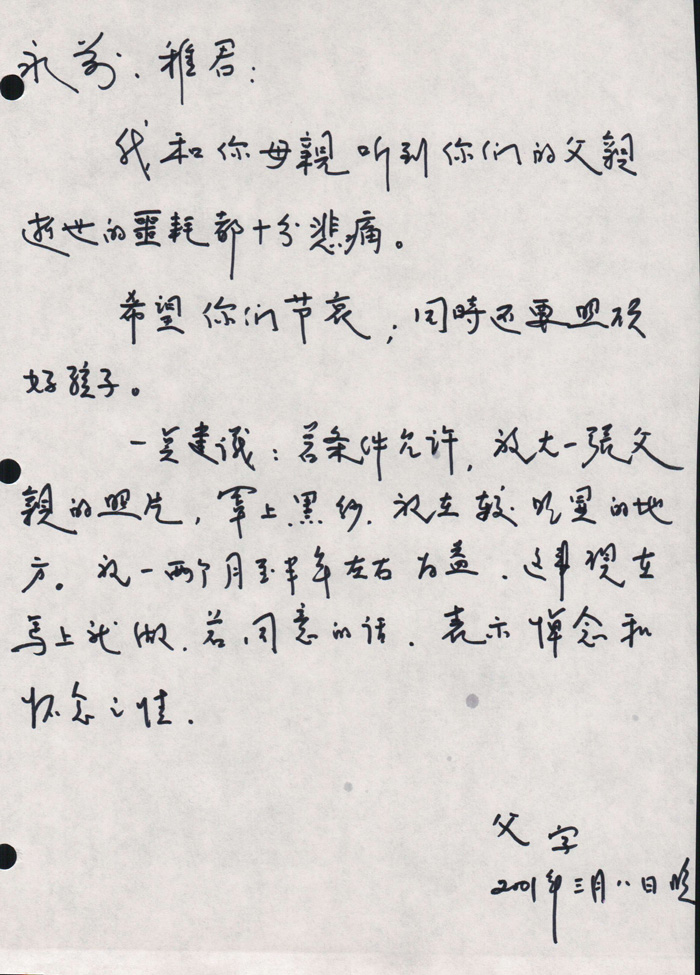 永芳、稚君：
我和你母親听到你们的父親
逝世的噩耗都十分悲痛。
希望你们节哀，同時还要照顾
好孩子。
一关建议：若条件允许，放大一張父
親的照片，罩上黑纱，放在较明显的地
方。放一两个月至半年左右为益，这事現在
馬上就做，若同意的话，表示悼念和
怀念之情.
父字
2001年三月八日晚